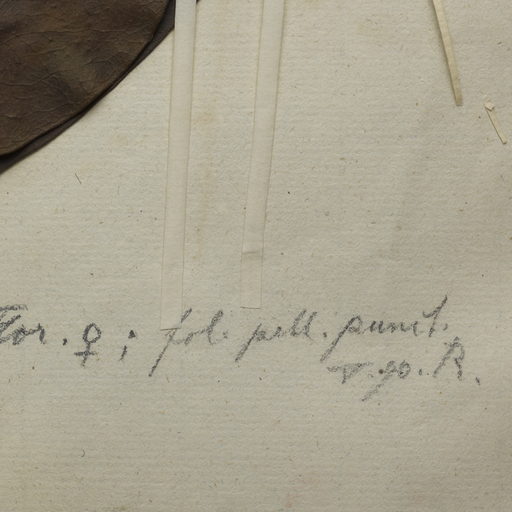 Flor. ♀; fol. pell. punct.
v. go. R.